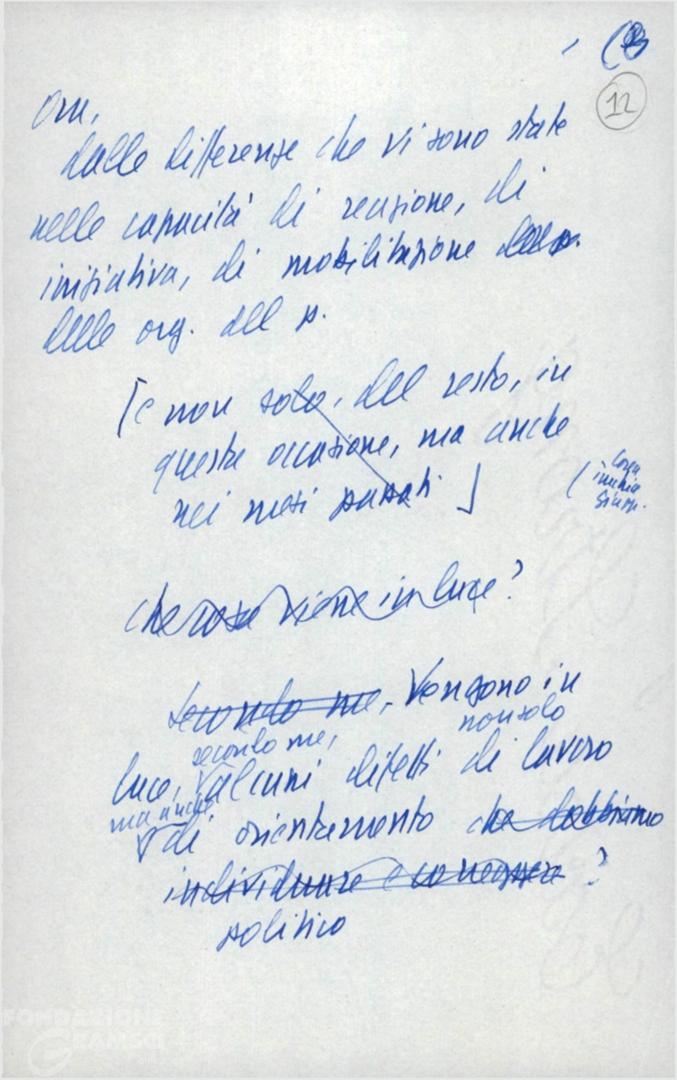 12
Ora,
dalle differenze che vi sono state
nelle capacità di reazione, di
iniziativa, di mobilitazione
delle org. del p.
[e non solo, del resto, in
questa occasione, ma anche
nei mesi passati]
che cosa viene in luce?
Secondo me, Vengono in
secondo me, non solo
luce, alcuni difetti di lavoro
ma anche
di orientamento che dobbiamo
individuare e
politico
FONDAZIONE
GRAMSCI